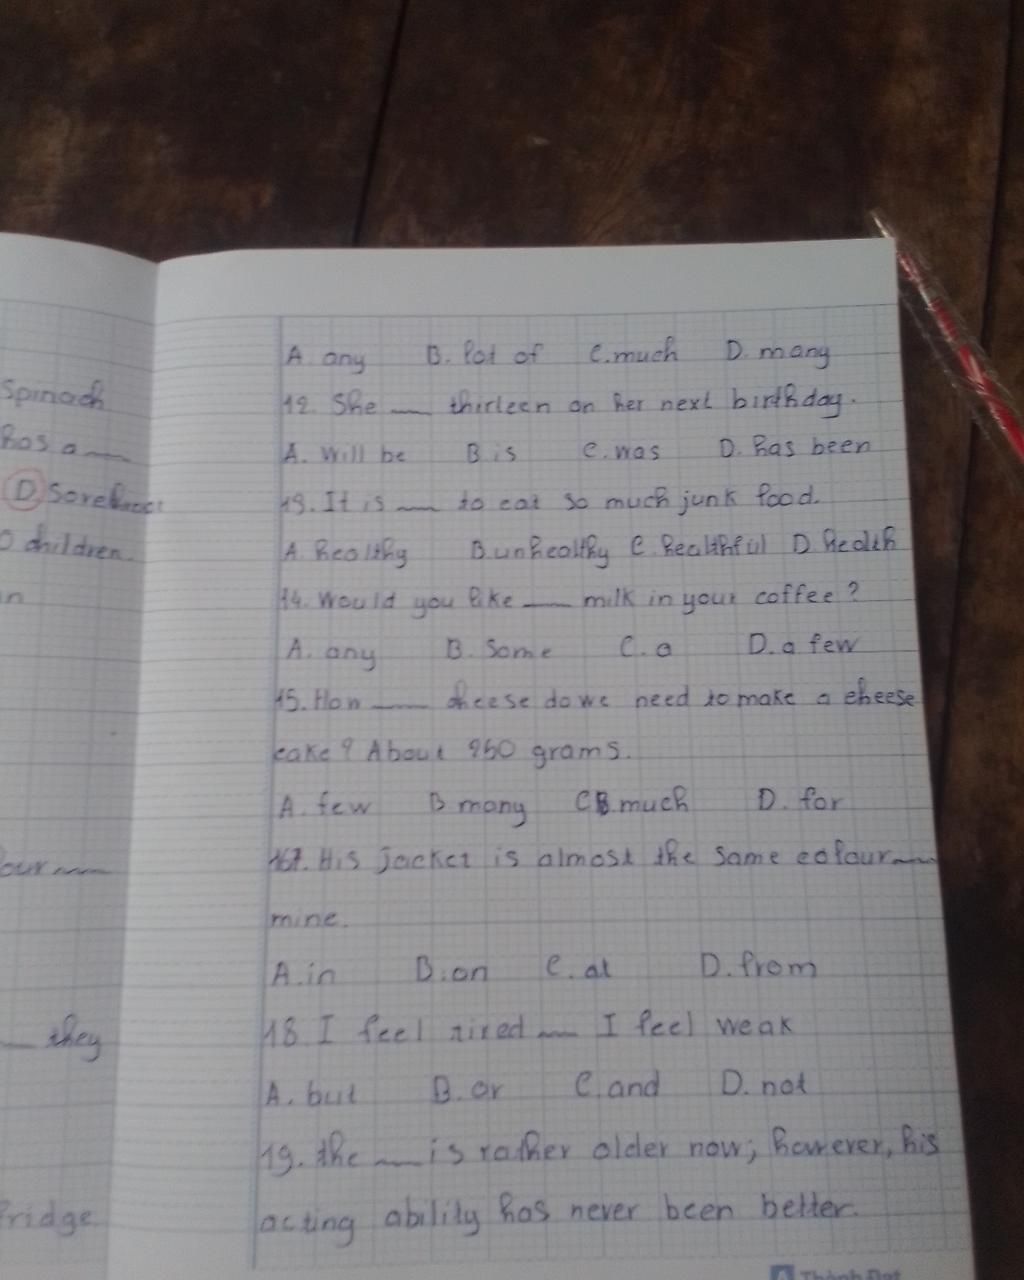 Spinach
has a __
D Sore
children.
in
our __
__ they
Fridge
A. any B. lot of C. much D. many
12. She __ thirteen on her next birthday.
A. Will be B is C. was D. has been
13. It is __ to eat so much junk food.
A. healthy B. unhealthy C. healthful D health
14. Would you like __ milk in your coffee?
A. any B. Some C. a D. a few
15. How __ cheese do we need to make a cheese
cake? About 250 grams.
A. few B many C much D. for
17. His jacket is almost the same colour __
mine.
A. in B. on C. at D. from
18 I feel tired __ I feel weak
A. but B. or C. and D. not
19. the __ is rather older now; however, his
acting ability has never been better.